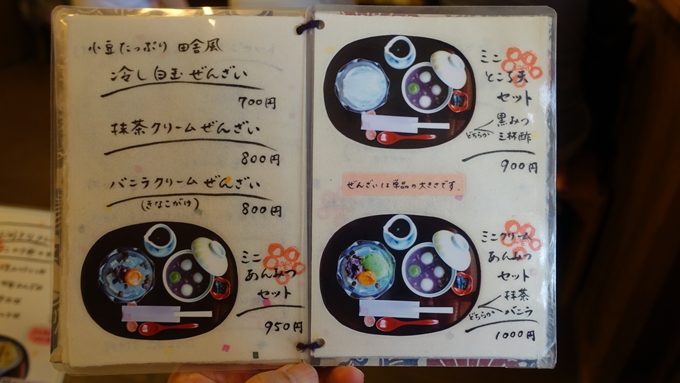 小豆たっぷり 田舎風
冷し白玉ぜんざい
700円
抹茶クリームぜんざい
800円
バニラクリームぜんざい
(きなこがけ)
800円
ミニ
あんみつ
セット
950円
ミニ
ところ天
セット
黒みつ
どちらか
三杯酢
900円
ぜんざいは単品の大きさです。
ミニクリーム
あんみつ
セット
抹茶
どちらか
バニラ
1000円